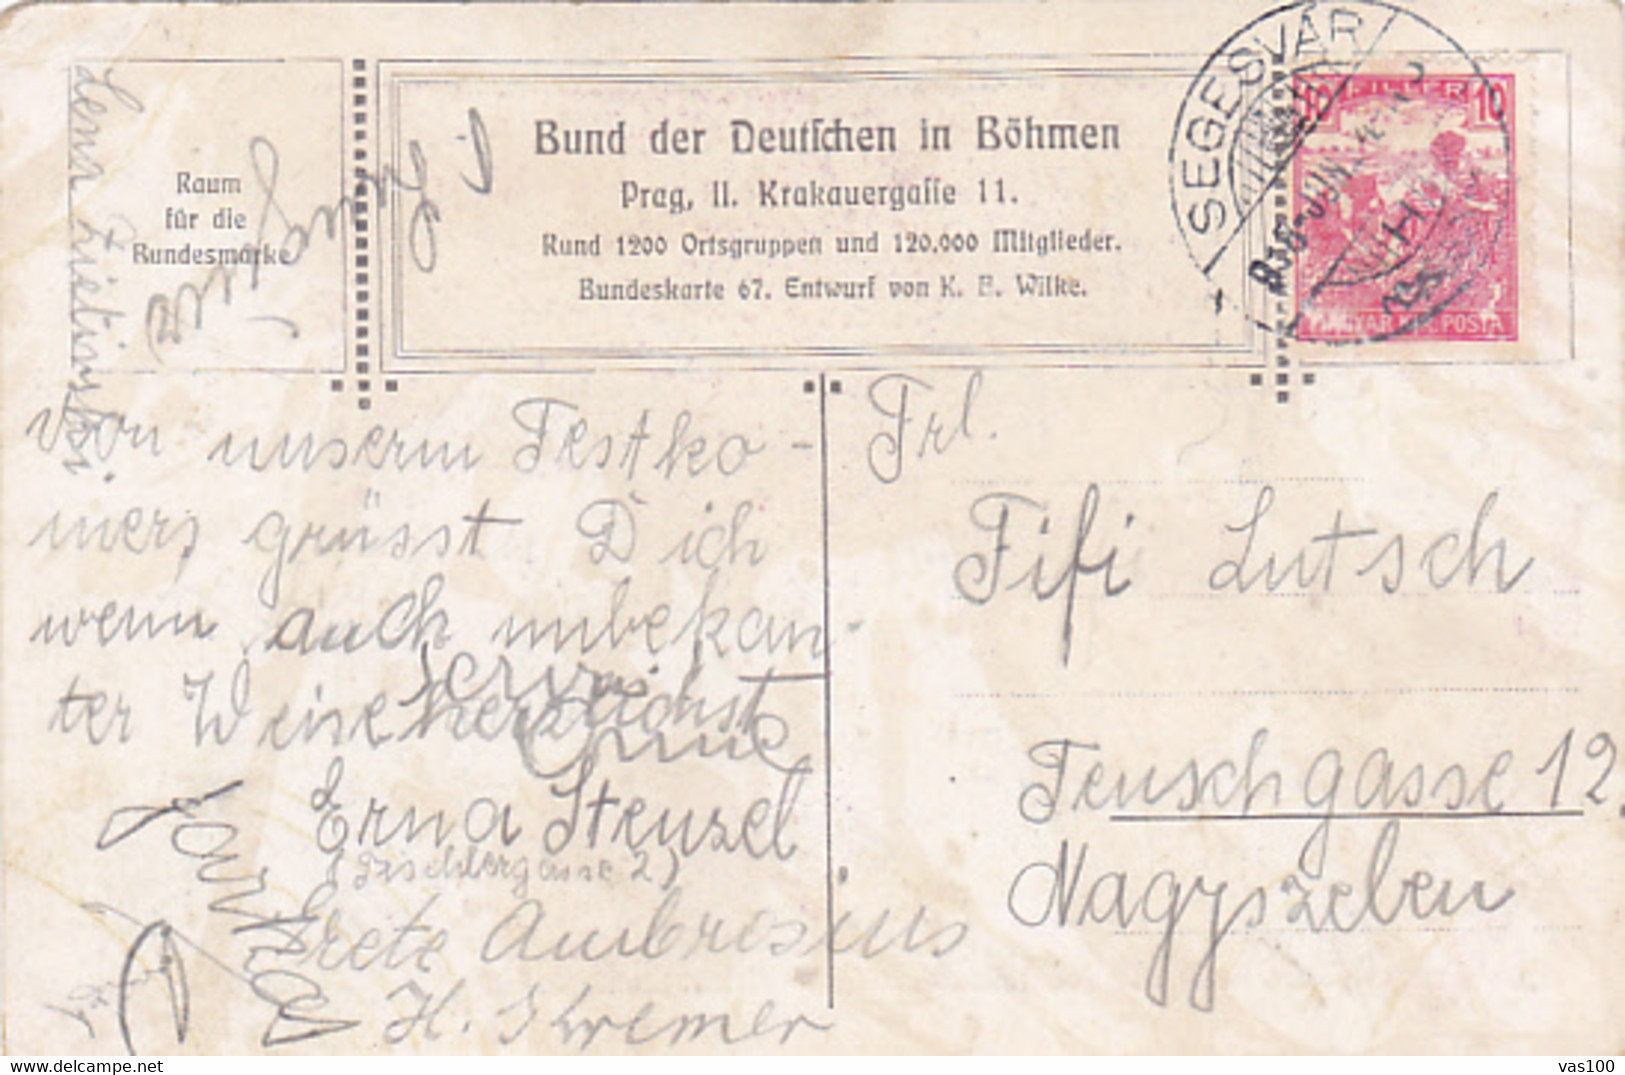 Raum
für die
Bundesmarke
Bund der Deutschen in Böhmen
Prag, II. Krakauergasse 11.
Rund 1200 Ortsgruppen und 120.000 Mitglieder.
Bundeskarte 67. Entwurf von K. F. Wilke.
SEGESVÁR
FILLER
10
MAGYAR KIR. POSTA
von unserm Festko-
mers grüsst Dich
wenn auch unbekan-
ter Weise herzlichst
Servus
Erna Stenzel
Grete Ambrosius
H. Kremer
Frl.
Fifi Lutsch
Teuschgasse 12.
Nagyszeben
© Delcampe
vas100